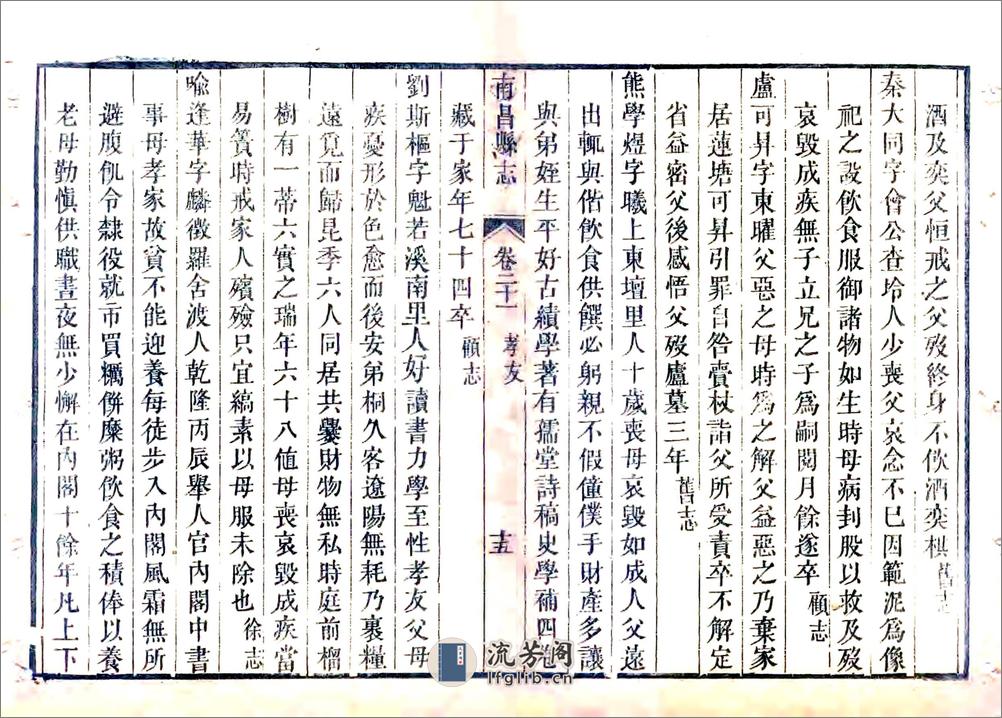 酒及奕父恒戒之父歿終身不飲酒奕棋舊志
秦大同字會公查坽人少喪父哀念不已因範泥爲像
祀之設飲食服御諸物如生時母病刲股以救及歿
哀毀成疾無子立兄之子爲嗣閱月餘遂卒顧志
盧可昇字東曜父惡之母時爲之解父益惡之乃棄家
居蓮塘可昇引罪自咎賣杖詣父所受責卒不解定
省益密父後感悟父歿廬墓三年舊志
熊學煜字曦上東壇里人十歲喪母哀毀如成人父遠
出輒與偕飲食供饌必躬親不假僮僕手財產多讓
與弟姪生平好古績學著有孺堂詩稿史學補四
南昌縣志 卷二十一 孝友 十五
藏于家年七十四卒顧志
劉斯樞字魁若溪南里人好讀書力學至性孝友父母
疾憂形於色愈而後安弟桐久客遼陽無耗乃裹糧
遠覓而歸昆季六人同居共爨財物無私時庭前榴
樹有一蒂六實之瑞年六十八值母喪哀毀成疾當
易簀時戒家人殯殮只宜縞素以母服未除也徐志
喻逢華字麟徵羅舍渡人乾隆丙辰舉人官內閣中書
事母孝家故貧不能迎養每徒步入內閣風霜無所
避腹飢令隸役就市買糲餅糜粥飲食之積俸以養
老母勤慎供職晝夜無少懈在內閣十餘年凡上下
流芳阁
lfglib.cn